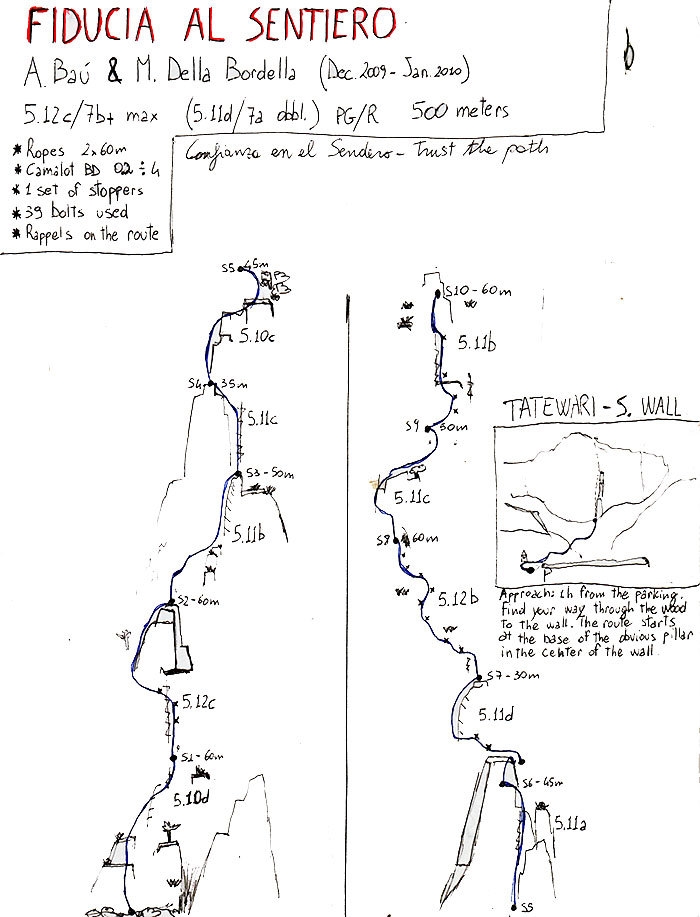 FIDUCIA AL SENTIERO
A. Baú & M. Della Bordella (Dec. 2009 - Jan. 2010)
5.12c/7b+ max (5.11d/7a obbl.) PG/R 500 meters
Confianza en el Sendero - Trust the path
* Ropes 2x60m
* Camalot BD 0.2 ÷ 4
* 1 set of stoppers
* 39 bolts used
* Rappels on the route
S5 45m
5.10c
S4 35m
5.11c
S3 - 50m
5.11b
S2 - 60m
5.12c
S1 - 60m
5.10d
S10 - 60m
5.11b
S9 30m
5.11c
S8 60m
5.12b
S7 - 30m
5.11d
S6 - 45m
5.11a
S5
TATEWARI - S. WALL
P
Approach: 1h from the parking.
Find your way through the wood
to the wall. The route starts
at the base of the obvious pillar
in the center of the wall.